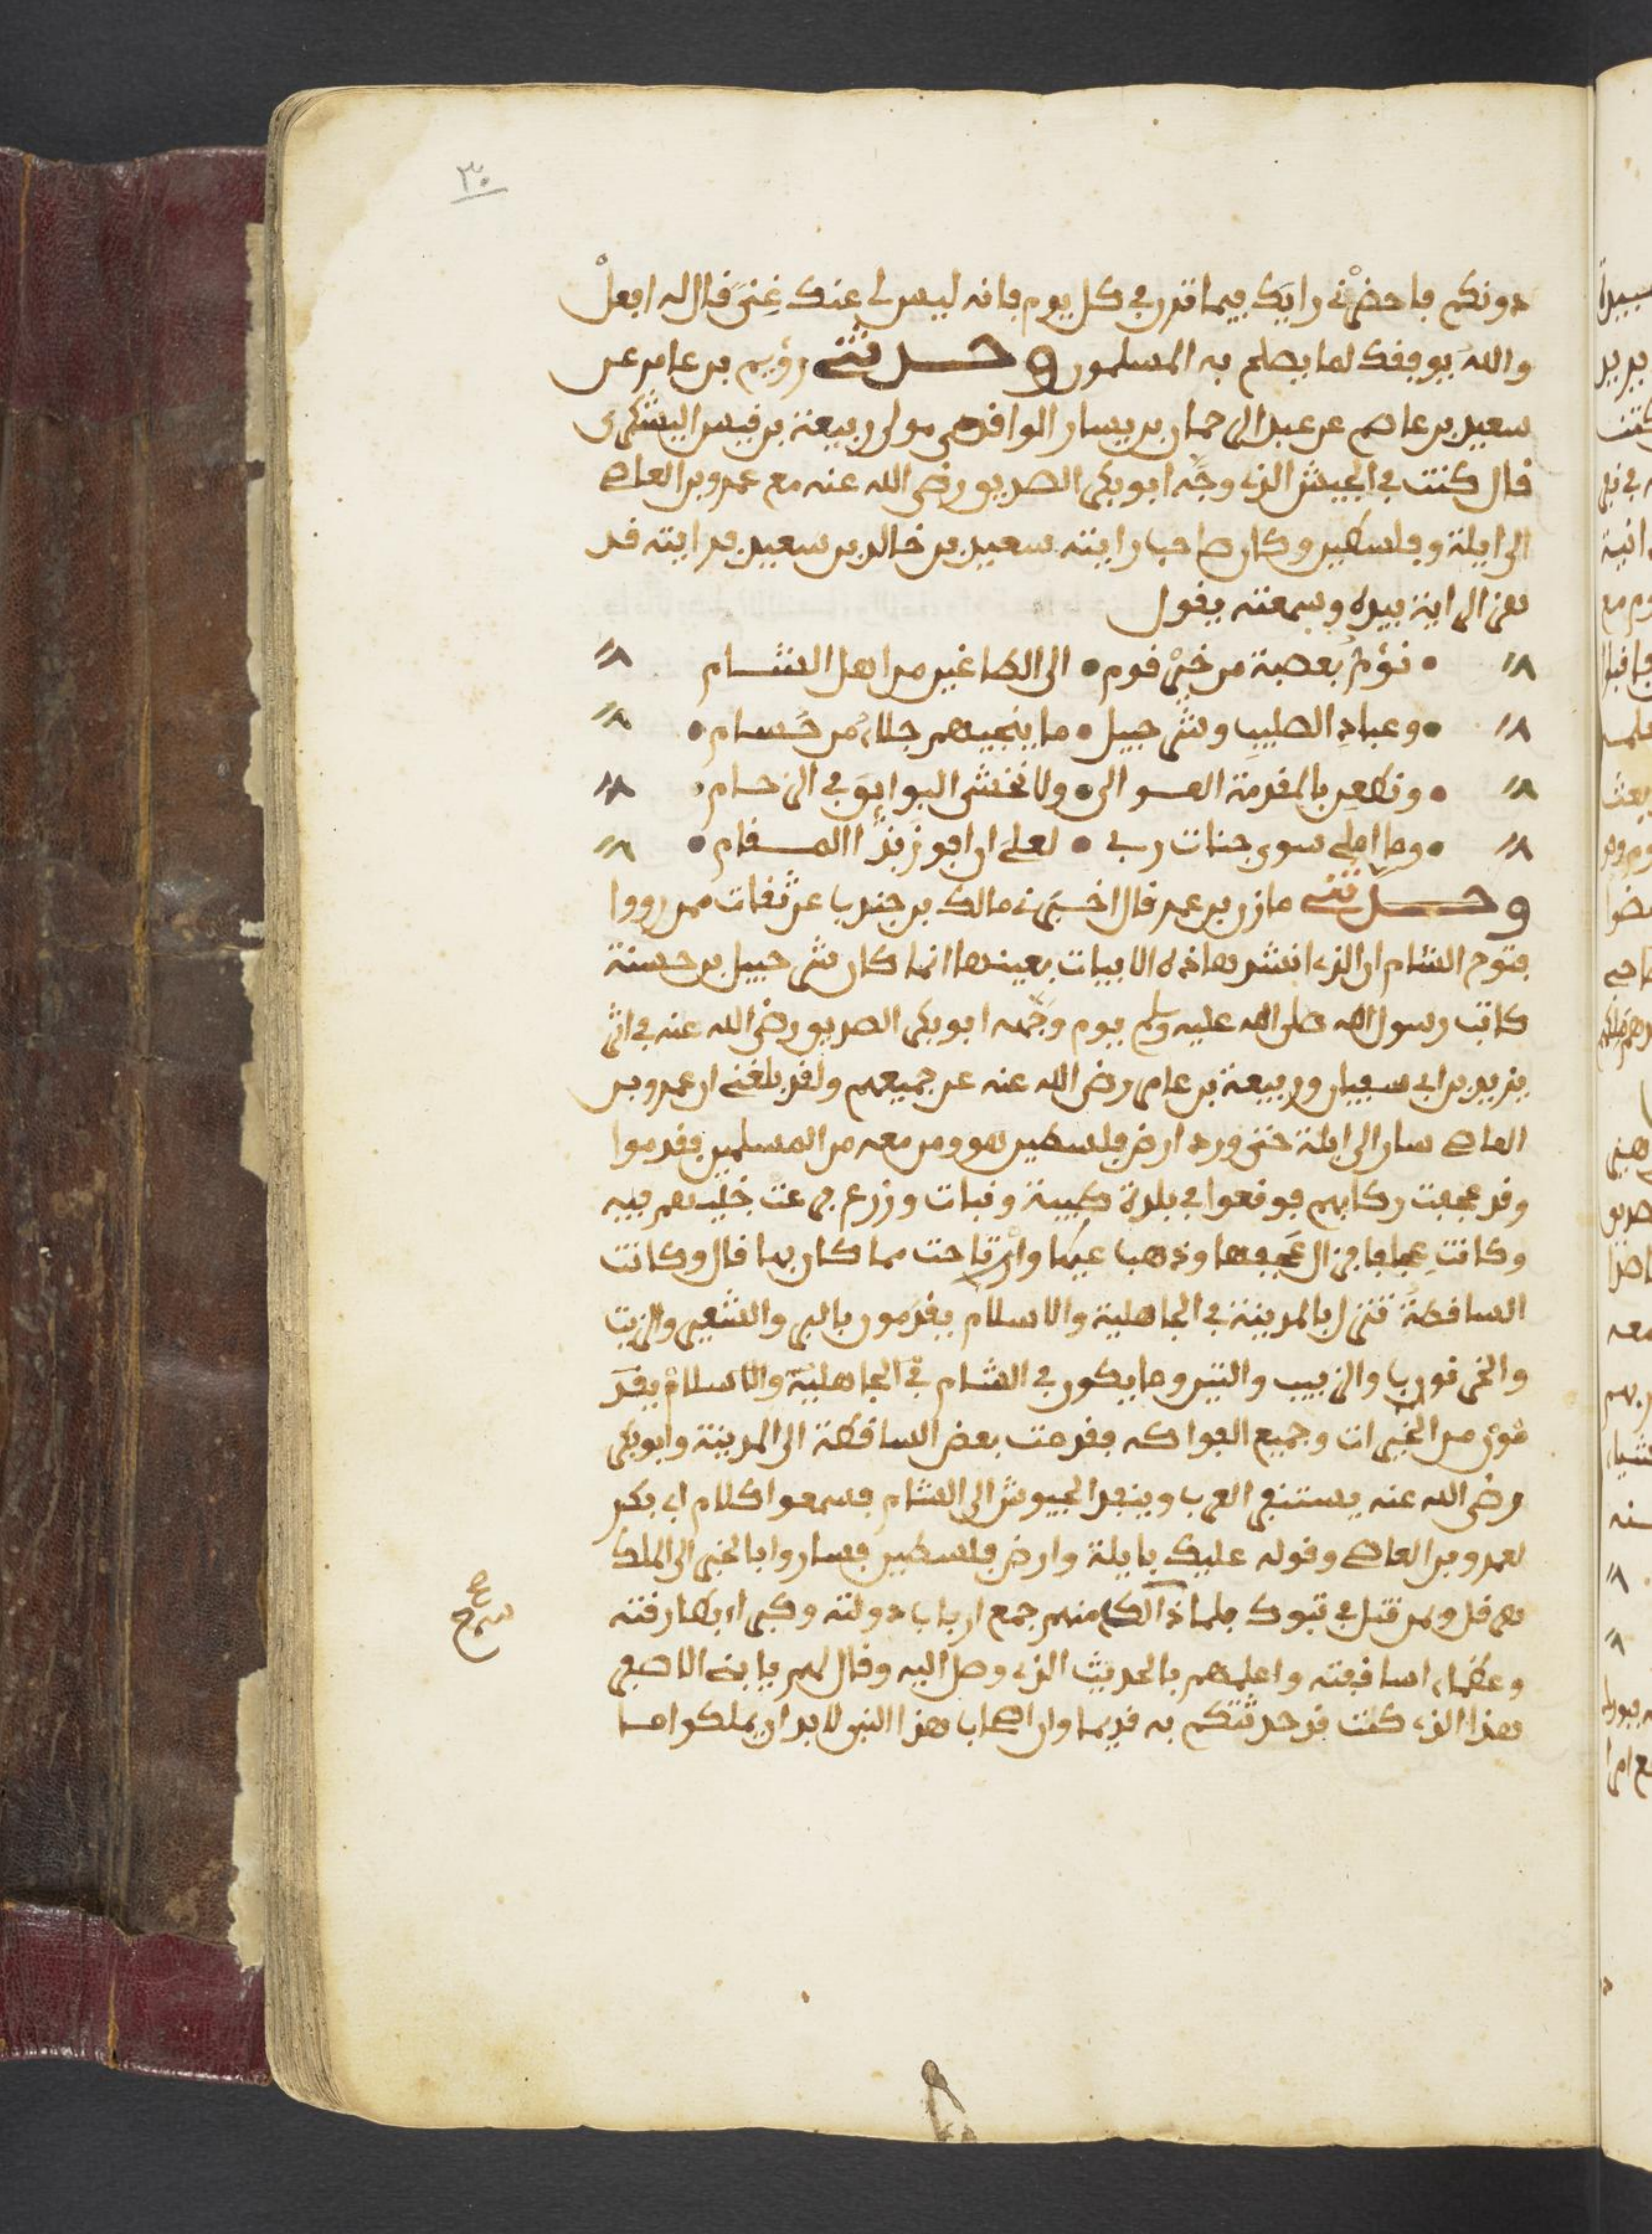 ٣٠
دونكم فاحضرني رايك فيما تدر في كل يوم فانه ليس لي عنك غنى قال له افعل
والله يوفقك لما يصلح به المسلمون وحدثني رؤيم بن عامر عن
سعيد بن عاصم عن عبد الرحمان بن يسار الواقدي مولى ربيعة بن قيس اليشكري
قال كنت في الجيش الذي وجه ابو بكر الصديق رضي الله عنه مع عمرو بن العاص
الى ايلة وفلسطين وكان صاحب رايته سعيد بن خالد بن سعيد فرايته قد
هز الراية بيده وسمعته يقول
نؤم بعصبة من خير قوم • الى الطاغين من اهل الشام
وعباد الصليب وشرحبيل • ما ينجيهم جلاء من حسام
ونطعن بالمقدمة العوالي • ولا نخشى البوايق في الزحام
وما املي سوى جنات ربي • لعلي ان افوز بذا المقام
وحدثني مازن بن عمر قال اخبرني مالك بن جندب عن ثقات ممن رووا
فتوح الشام ان الذي انشد هاذه الابيات بعينها انما كان شرحبيل بن حسنة
كاتب رسول الله صلى الله عليه وسلم يوم وجهه ابو بكر الصديق رضي الله عنه في اثر
يزيد بن ابي سفيان وربيعة بن عامر رضي الله عنه عن جميعهم ولقد بلغني ان عمرو بن
العاص سار الى ايلة حتى ورد ارض فلسطين هو ومن معه من المسلمين فقدموا
وقد عجفت ركابهم فوقعوا في بلدة طيبة ونبات وزرع فرعت خليهم فيه
وكانت عجافا فزال عجفها وذهب عيها وارتاحت مما كان بها قال وكانت
الساقطة تنزل بالمدينة في الجاهلية والاسلام يقدمون بالبر والشعير والزيت
والخرنوب والزبيب والتين وما يكون في الشام في الجاهلية والاسلام يقد
مون من الخيرات وجميع الفواكه فقدمت بعض الساقطة الى المدينة وابو بكر
رضي الله عنه يستنفر العرب وينفد الجيوش الى الشام فسمعوا كلام ابي بكر
لعمرو بن العاص وقوله عليك بايلة وارض فلسطين فساروا بالخبر الى الملك
هرقل ومن قتل في تبوك فلما ذالك منهم جمع ارباب دولته وكبراء بطارقته
وعظماء اساقفته واعلمهم بالحديث الذي وصل اليه وقال لهم يا بني الاصفر
هذا الذي كنت قد حدثتكم به قديما وان اصحاب هذا النبي لا بد ان يملكوا ما